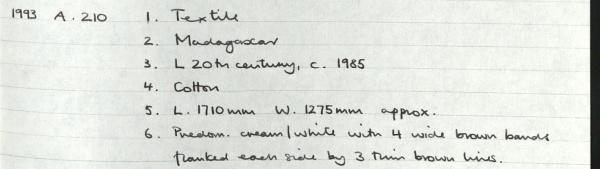 1993 A. 210 1. Textile
2. Madagascar
3. L 20th century, c. 1985
4. Cotton
5. L. 1710mm W. 1275mm approx.
6. Predom. cream/white with 4 wide brown bands
flanked each side by 3 thin brown lines.